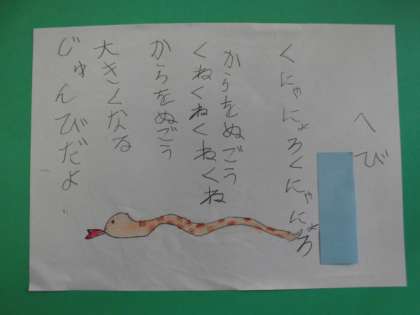 へび
くにゃにょろくにゃにょろ
からをぬごう
くねくねくねくね
からをぬごう
大きくなる
じゅんびだよ.